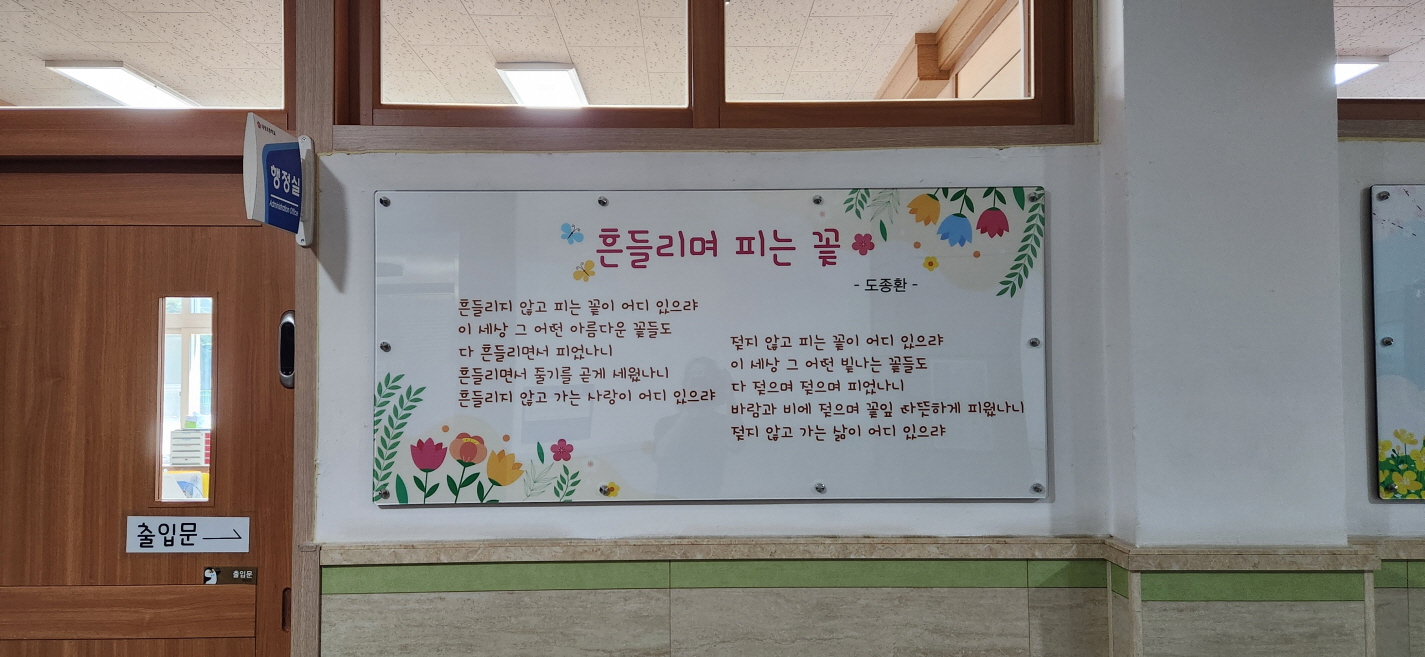 행정실
Administration Office
흔들리며 피는 꽃
- 도종환 -
흔들리지 않고 피는 꽃이 어디 있으랴
이 세상 그 어떤 아름다운 꽃들도
다 흔들리면서 피었나니
흔들리면서 줄기를 곧게 세웠나니
흔들리지 않고 가는 사랑이 어디 있으랴
젖지 않고 피는 꽃이 어디 있으랴
이 세상 그 어떤 빛나는 꽃들도
다 젖으며 젖으며 피었나니
바람과 비에 젖으며 꽃잎 따뜻하게 피웠나니
젖지 않고 가는 삶이 어디 있으랴
출입문
출입문